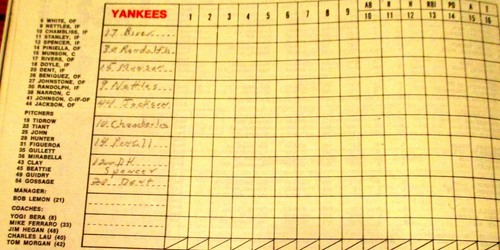 YANKEES 1 2 3 4 5 6 7 8 9 AB 10 R 11 H 12 RBI 13 PO 14 A 15 E 16
6 WHITE, OF
9 NETTLES, IF
10 CHAMBLISS, IF
11 STANLEY, IF
12 SPENCER, IF
14 PINIELLA, OF
15 MUNSON, C
17 RIVERS, OF
18 DOYLE, IF
20 DENT, IF
BENIQUEZ, OF
27 JOHNSTONE, OF
30 RANDOLPH, IF
38 NARRON, C
41 JOHNSON, C-IF-OF
44 JACKSON, OF
PITCHERS
19 TIDROW
23 TIANT
25 JOHN
29 HUNTER
31 FIGUEROA
35 GULLETT
36 MIRABELLA
43 CLAY
45 BEATTIE
49 GUIDRY
54 GOSSAGE
MANAGER:
BOB LEMON (21)
COACHES:
YOGI BERA (8)
MIKE FERRARO (33)
JIM HEGAN (46)
CHARLES LAU (40)
TOM MORGAN (42)
17 River
30 Randolph
15 Munson
9 Nettles
44 Jackson
10 Chambliss
14
12 DH
Spencer
20 Dent